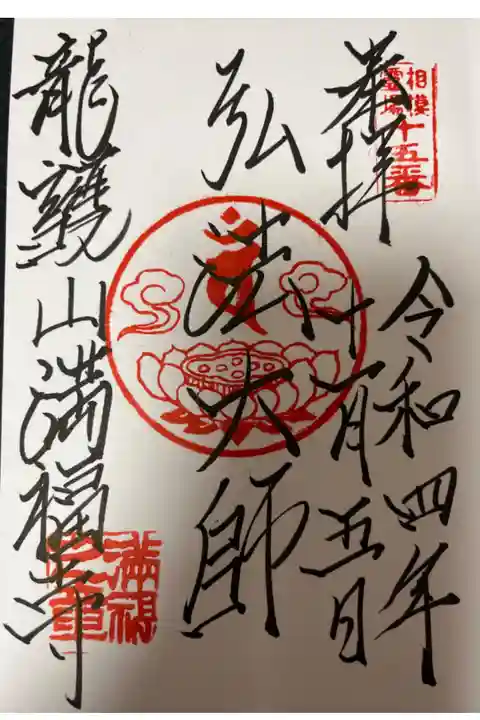 相模
霊場
十五番
奉拝
令和四年
十一月五日
弘法大師
龍護山満福寺
満福